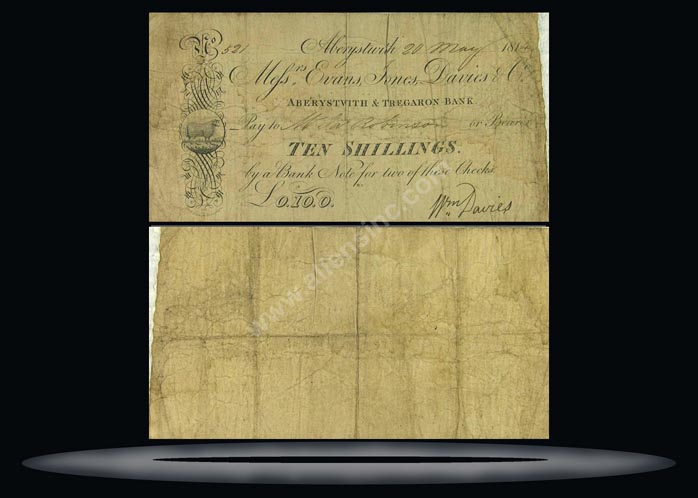 No 521 Aberystwith 20 May 181
Messrs. Evans, Jones, Davies & Co.
ABERYSTWITH & TREGARON BANK
Pay to Mr Robinson or Bearer
TEN SHILLINGS.
by a Bank Note for two of these Checks
£0.10.0. Wm Davies
www.allensinc.com